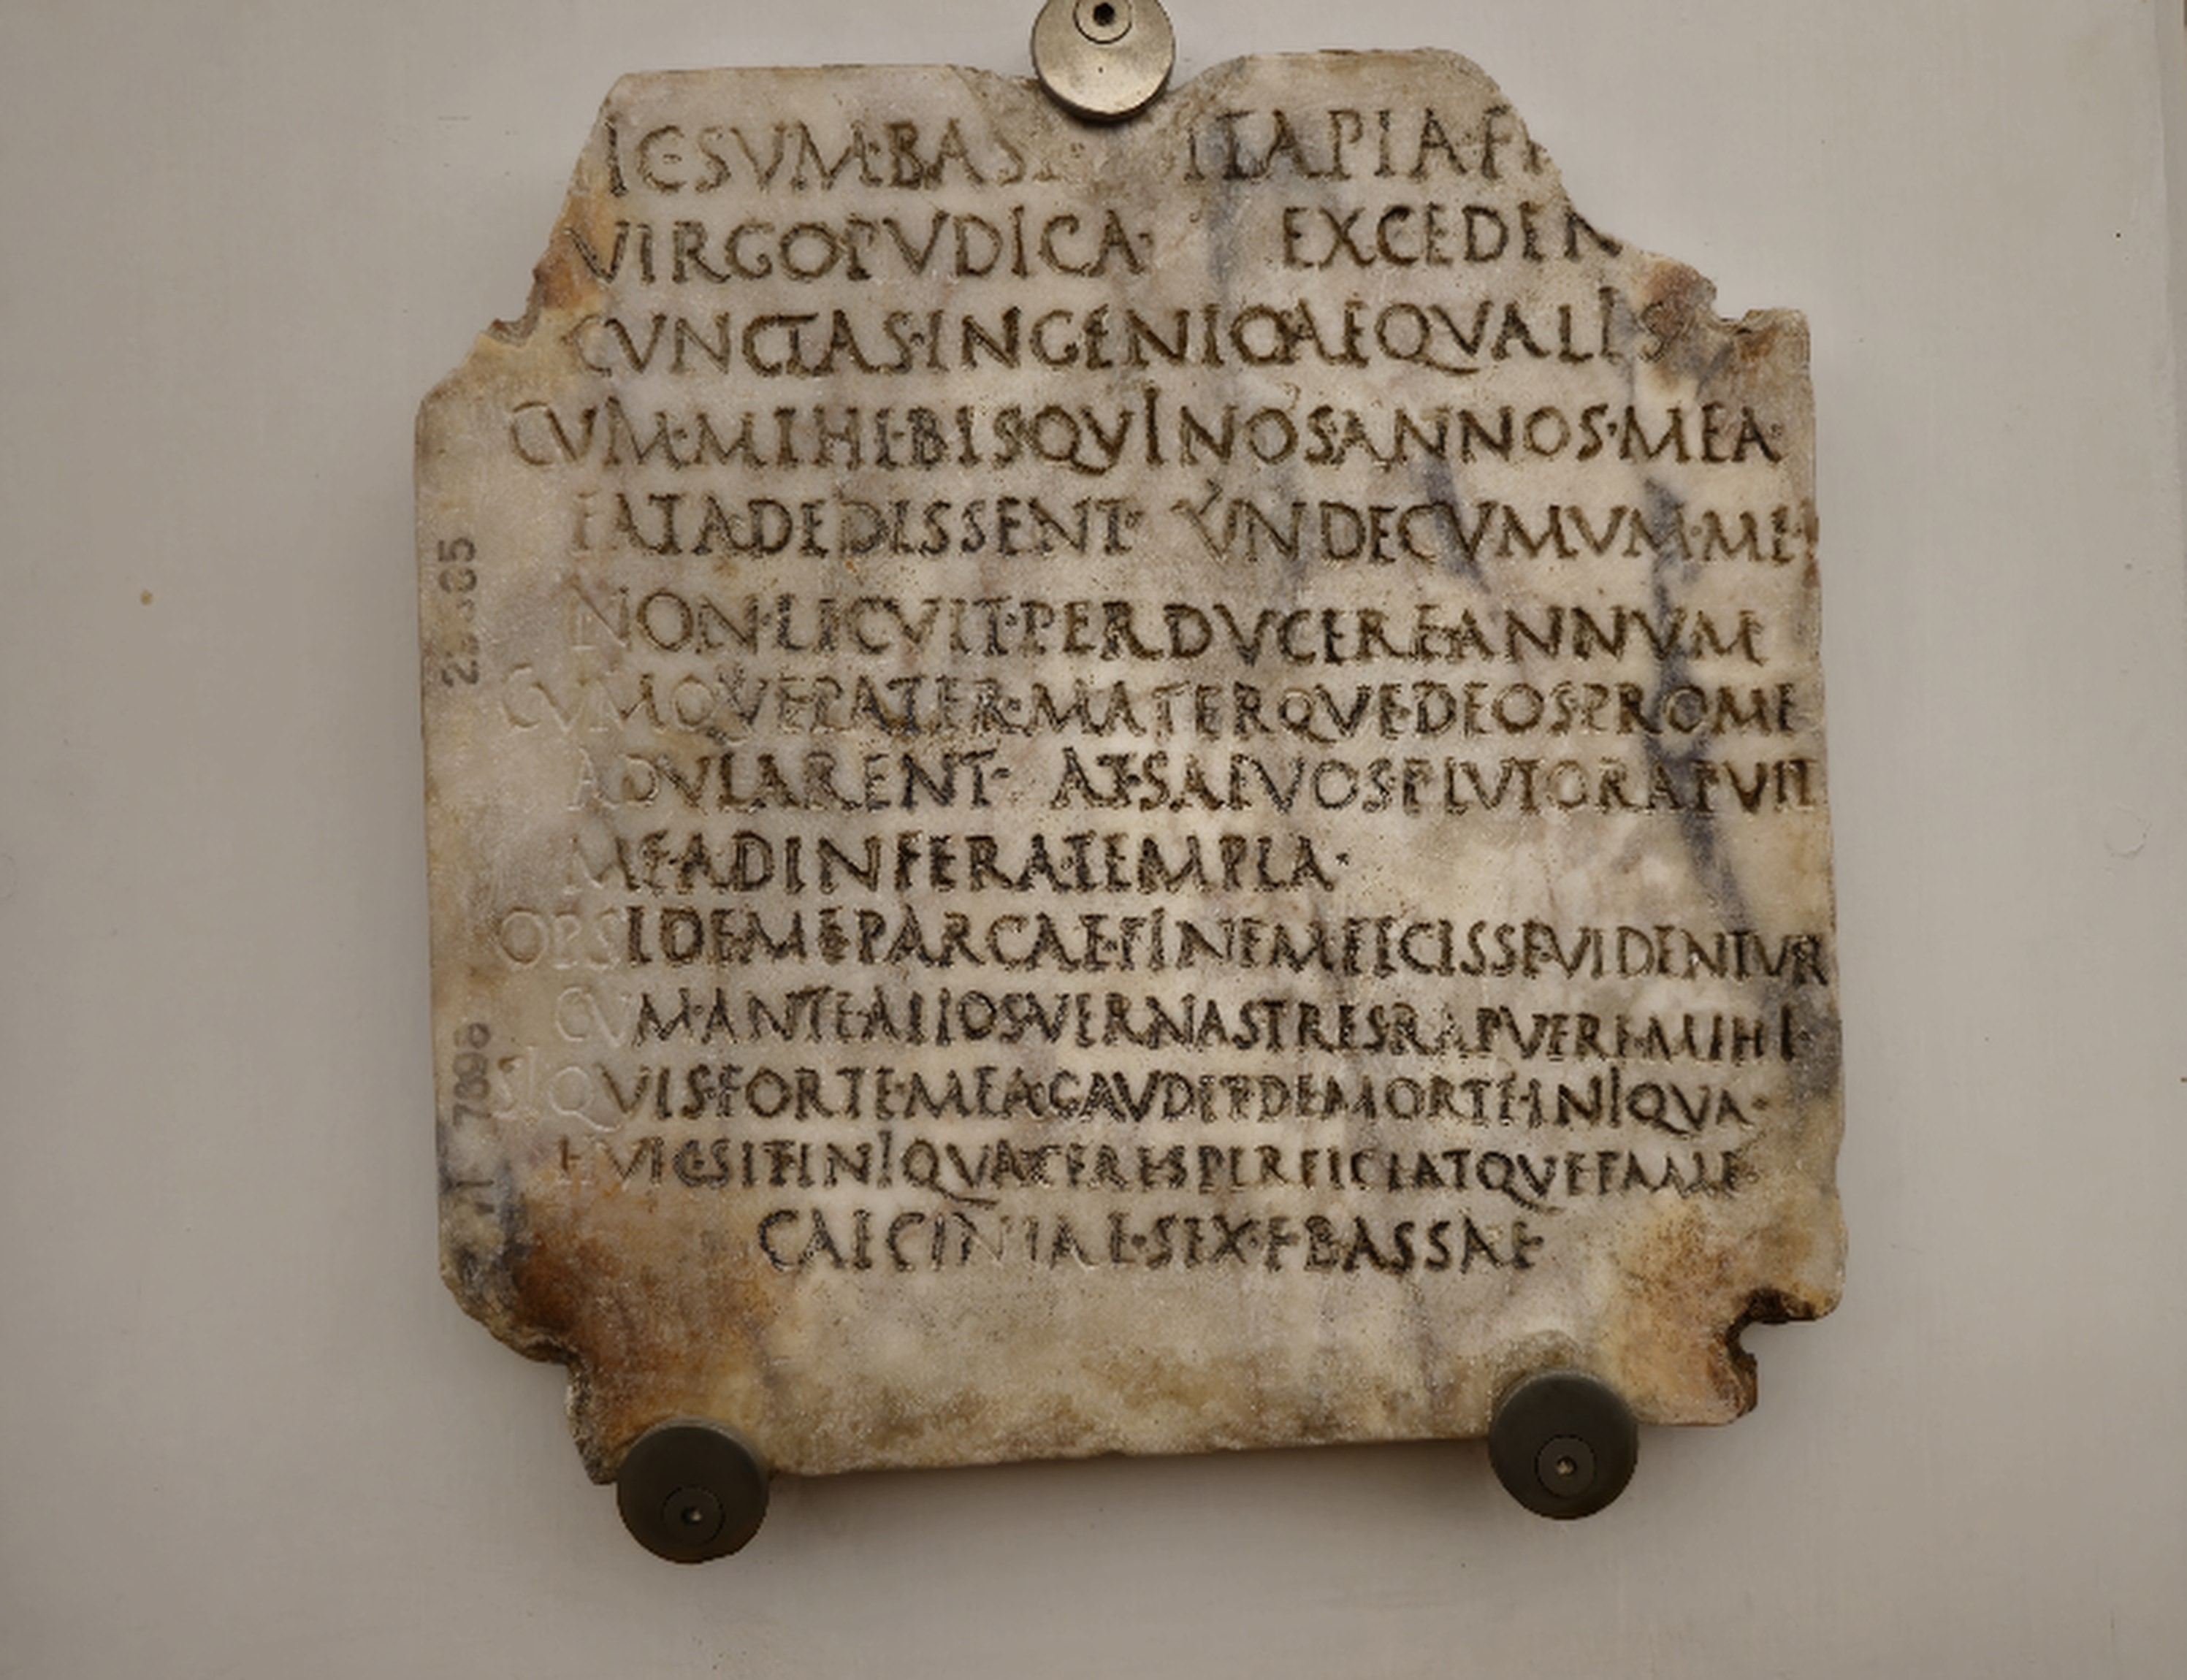 IC·SVM·BAS ITA PIA F
VIRGO PVDICA· EXCEDEN
CVNCTAS·INGENIO AEQVALIS
CVM·MIHI·BIS QVINOS ANNOS·MEA·
FATA DEDISSENT· VNDECVMVM·MEI
NON·LICVIT·PERDVCERE ANNVM
CVMQVE PATER·MATERQVE·DEOS PRO ME
ADVLARENT· AT·SAEVOS PLVTO RAPVIT
ME·AD INFERA·TEMPLA·
OPSIDEM E PARCAE FINEM FECISSE VIDENTVR
CVM·ANTE·ALIOS VERNAS TRES RAPVERE·MIHI·
SI QVIS·FORTE·MEA·GAVDET·DE MORTE·INIQVA·
HVIC·SIT·INIQVA CERES PERFICIATQVE FAME·
CAECINIAE·SEX·F·BASSAE